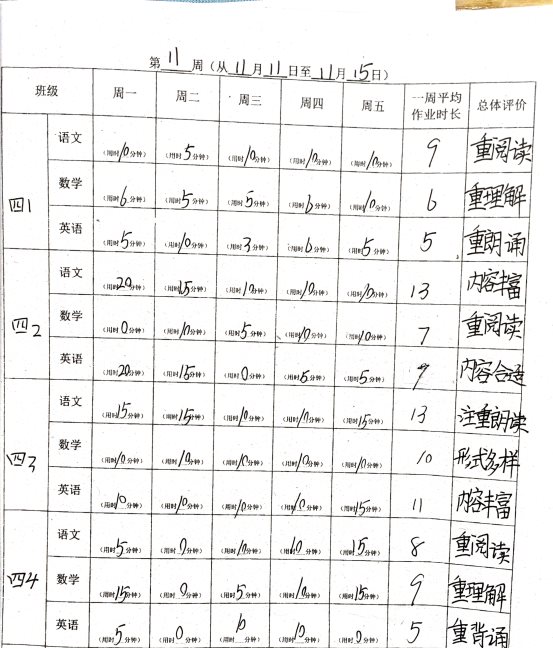 第 11 周（从 11 月 11 日至 11 月 15 日）
班级 周一 周二 周三 周四 周五 一周平均作业时长 总体评价
四1 语文 （用时10分钟） （用时5分钟） （用时10分钟） （用时10分钟） （用时10分钟） 9 重阅读
数学 （用时6分钟） （用时5分钟） （用时5分钟） （用时6分钟） （用时10分钟） 6 重理解
英语 （用时5分钟） （用时10分钟） （用时3分钟） （用时6分钟） （用时5分钟） 5 重朗诵
四2 语文 （用时20分钟） （用时15分钟） （用时10分钟） （用时10分钟） （用时10分钟） 13 内容丰富
数学 （用时0分钟） （用时10分钟） （用时5分钟） （用时10分钟） （用时10分钟） 7 重阅读
英语 （用时20分钟） （用时15分钟） （用时0分钟） （用时5分钟） （用时5分钟） 9 内容合适
四3 语文 （用时15分钟） （用时15分钟） （用时10分钟） （用时10分钟） （用时15分钟） 13 注重朗读
数学 （用时10分钟） （用时10分钟） （用时10分钟） （用时10分钟） （用时10分钟） 10 形式多样
英语 （用时10分钟） （用时10分钟） （用时10分钟） （用时10分钟） （用时15分钟） 11 内容丰富
四4 语文 （用时5分钟） （用时0分钟） （用时10分钟） （用时10分钟） （用时15分钟） 8 重阅读
数学 （用时15分钟） （用时0分钟） （用时5分钟） （用时10分钟） （用时15分钟） 9 重理解
英语 （用时5分钟） （用时0分钟） （用时10分钟） （用时10分钟） （用时0分钟） 5 重背诵